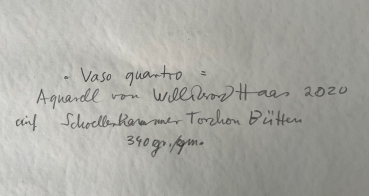 - Vaso quantro =
Aquarell von Willi Haas 2020
auf Schoellershammer Torchon Bütten
340gr./qm.